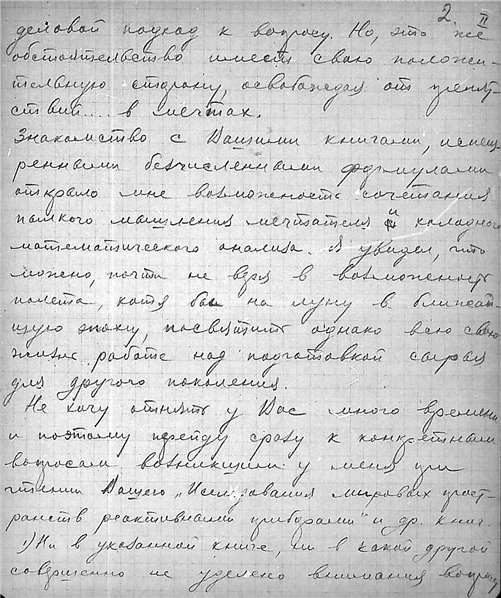 2. II
деловой подход к вопросу. Но, это же
обстоятельство имеет свою положи-
тельную сторону, освобождая от препят
ствий.... в мечтах.
Знакомство с Вашими книгами, испещ-
ренными бесчисленными формулами
открыло мне возможность сочетания
пылкого мышления мечтателя и холодного
математического анализа. Я увидел, что
можно, почти не веря в возможность
полета, хотя бы на луну в ближай-
шую эпоху, посвятить однако всю свою
жизнь работе над подготовкой сырья
для другого поколения.
Не хочу отнять у Вас много времени
и поэтому перейду сразу к конкретным
вопросам возникшим у меня при
чтении Вашего „Исследования мировых прост-
ранств реактивными приборами" и др. книг.
1) Ни в указанной книге, ни в какой другой
совершенно не уделено внимания вопросу